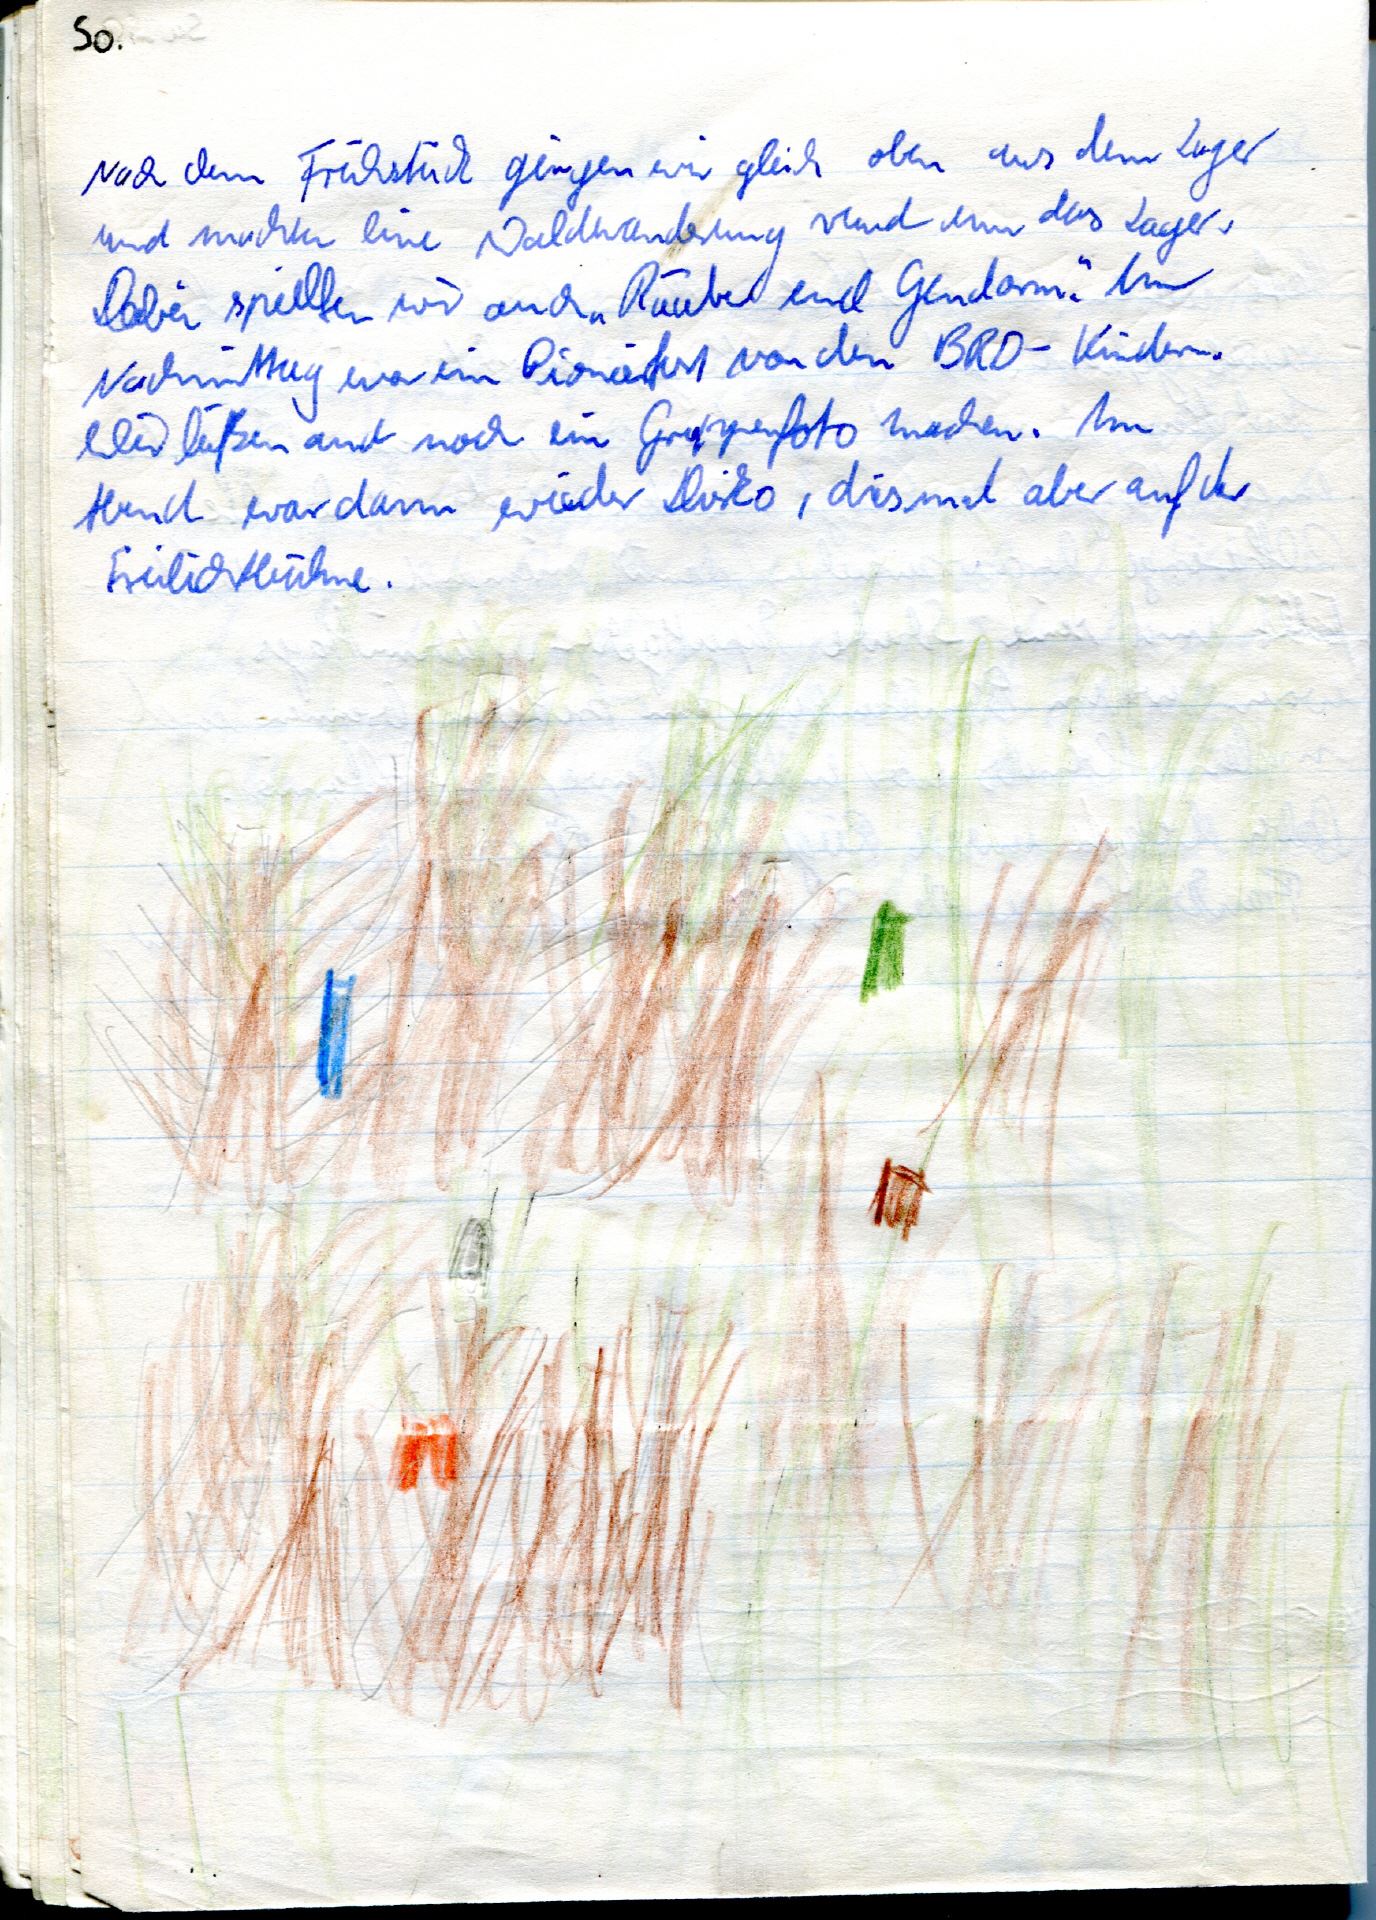 So.
Nach dem Frühstück gingen wir gleich oben aus dem Lager
und machten eine Waldwanderung rund um das Lager.
Dabei spielten wir auch „Räuber und Gendarm“. Am
Nachmittag war ein Pionierfest von den BRD-Kindern.
Wir ließen auch noch ein Gruppenfoto machen. Am
Abend war dann wieder Disko, diesmal aber auf der
Freilichtbühne.